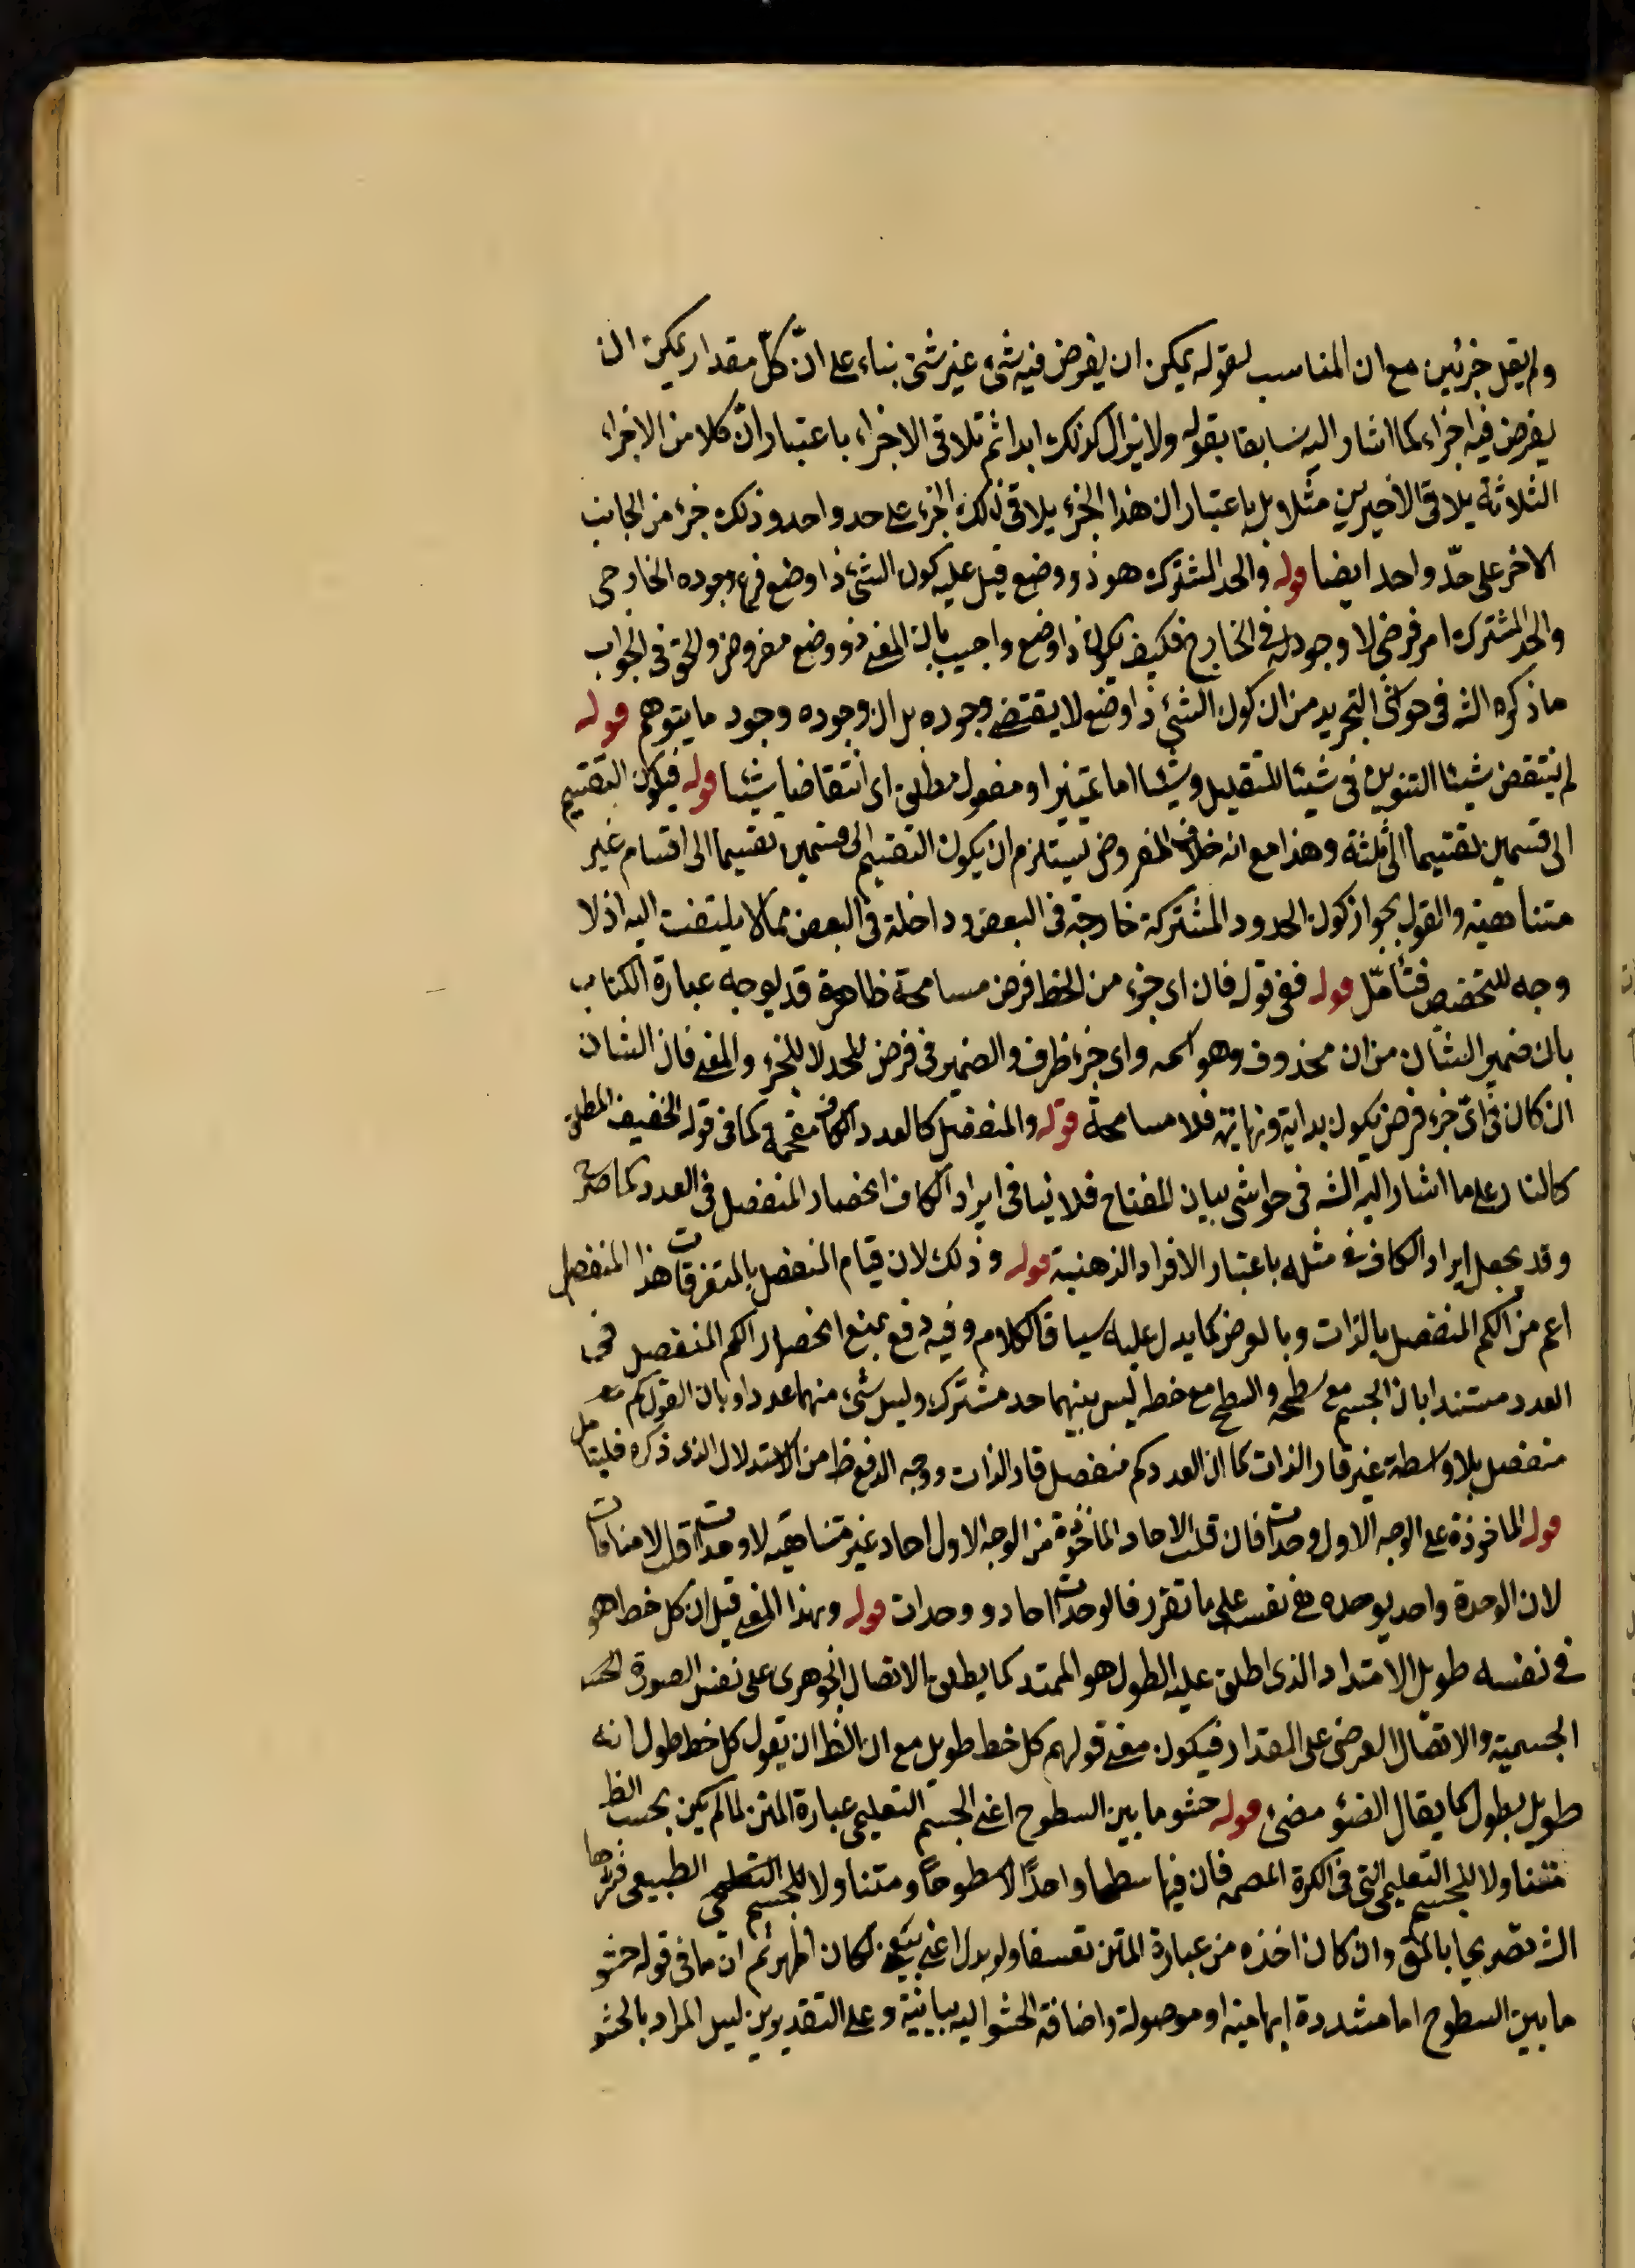 ولم يقل جزئين مع ان المناسب لقوله يمكن ان يفرض فيه شئ غير شئ بناء على انّ كلّ مقدار يمكن ان
يفرض فيه اجزاء كما اشار اليه سابقا بقوله ولا يزال كذلك ابدا ثم تلاقى الاجزاء باعتبار انّ كلا من الاجزاء
الثلاثة يلاقى الاخيرين مثلا وبل باعتبار ان هذا الجزء يلاقى ذلك الجزء على حد واحد وذلك جزء من الجانب
الاخر على حدّ واحد ايضا قوله والحد المشترك هو ذو وضع قيل عليه كون الشئ ذا وضع فرع وجوده الخارجى
والحد المشترك امر فرضى لا وجود له فى الخارج فكيف يكون ذا وضع واجيب بان المعنى ذو وضع مفروض والحق فى الجواب
ما ذكره الشه فى حواشى التجريد من ان كون الشئ ذا وضع لا يقتضى وجوده بل ان وجوده وجود ما يتوهم قوله
لم ينتقض شيئا التنوين فى شيئا للتقليل وشيئا اما تمييز او مفعول مطلق اى انتقاضا شيئا قوله فيكون التقسيم
الى قسمين تقسيما الى ثلثة وهذا مع انه خلاف المفروض يستلزم ان يكون التقسيم الى قسمين تقسيما الى اقسام غير
متناهية والقول بجواز كون الحدود المشتركة خارجة فى البعض وداخلة فى البعض مما لا يلتفت اليه اذ لا
وجه للتخصيص فتأمّل قوله ففى قوله فان اى جزء من الخط فرض مسامحة ظاهرة قد يوجه عبارة الكتاب
بان ضمير الشأن من ان محذوف وهو اسمه واى جزء ظرف والضمير فى فرض للحد لا للجزء والمعنى فان الشان
ان كان فى اىّ جزء فرض يكون بداية ونهاية فلا مسامحة قوله والمنفصل كالعدد الكاف مقحمة كما فى قوله الخفيف المطلق
كالنار على ما اشار اليه الشه فى حواشى بيان المفتاح فلا ينافى ايراد الكاف انحصار المنفصل فى العدد كما صرح
وقد يجعل ايراد الكاف فى مثله باعتبار الافراد الذهنية قوله وذلك لان قيام المنفصل بالمتفرقات هذا المنفصل
اعم من الكم المنفصل بالذات وبالعرض كما يدل عليه سياق الكلام وفيه دفع بمنع انحصار الكم المنفصل فى
العدد مستندا بان الجسم مع سطحه والسطح مع خطه ليس بينهما حد مشترك وليس شئ منهما عددا وبان القول كم
منفصل بلا واسطة غير قار الذات كما ان العدد كم منفصل قار الذات ووجه الدفع ظ من الاستدلال الذى ذكره فليتامل
قوله الماخوذة على الوجه الاول وحدات فان قلت الاحاد الماخوذة من الوجه الاول احاد غير متناهية لا وحدات قلت لا منافات
لان الوحدة واحد بوحده هى نفسه على ما تقرر فالوحدات احاد ووحدات قوله وبهذا المعنى قيل ان كل خط هو
فى نفسه طويل الامتداد الذى اطلق عليه الطول هو الممتد كما يطلق الاتصال الجوهرى على نفس الصورة
الجسمية والاتصال العرضى على المقدار فيكون معنى قولهم كل خط طويل مع ان الظ ان يقول كل خط طول انه
طويل بطول كما يقال الضوء مضئ قوله حشو ما بين السطوح اعنى الجسم التعليمى عبارة المتن لما لم يكن بحسب الظ
متناولا للجسم التعليمى التى فى الكرة المصمة فان فيها سطحا واحدا لا سطوحا ومتناولا للجسم الطبيعى فسّرها
الشه تصريحا بالمق وان كان اخذه من عبارة المتن تعسفا ولو بدل اعنى لكان اظهر ثم ان ما فى قوله حشو
ما بين السطوح اما مشددة ابهامية او موصولة واضافة الحشو اليه بيانية وعلى التقديرين ليس المراد بالحشو